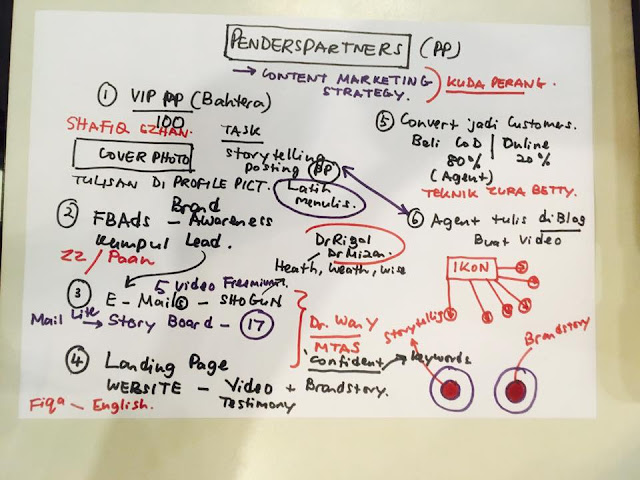 PENDERSPARTNERS (PP)
→ CONTENT MARKETING
STRATEGY.
KUDA PERANG.
① VIP PP (Bahtera)
100
SHAFIQ
TASK
COVER PHOTO
Storytelling
posting PP
TULISAN DI PROFILE PICT.
Latih
menulis.
② Brand
FBAds - Awareness
Kumpul Lead.
ZZ / Paan
Dr Rizal
Dr Mizan
Heath, Weath, Wise
5 Video Freemium.
③ E-Mail - SHOGUN
Mail Lite → Story Board - 17
Dr. Wan Y
MTAS
④ Landing Page
WEBSITE - Video + Brandstory.
Testimony
Fiqa - English.
Confident → keywords
⑤ Convert jadi Customers.
Beli COD | Online
80% | 20%
(Agent)
TEKNIK ZURA BETTY.
⑥ Agent tulis di Blog
Buat Video
IKON
Storytellig
Brandstory